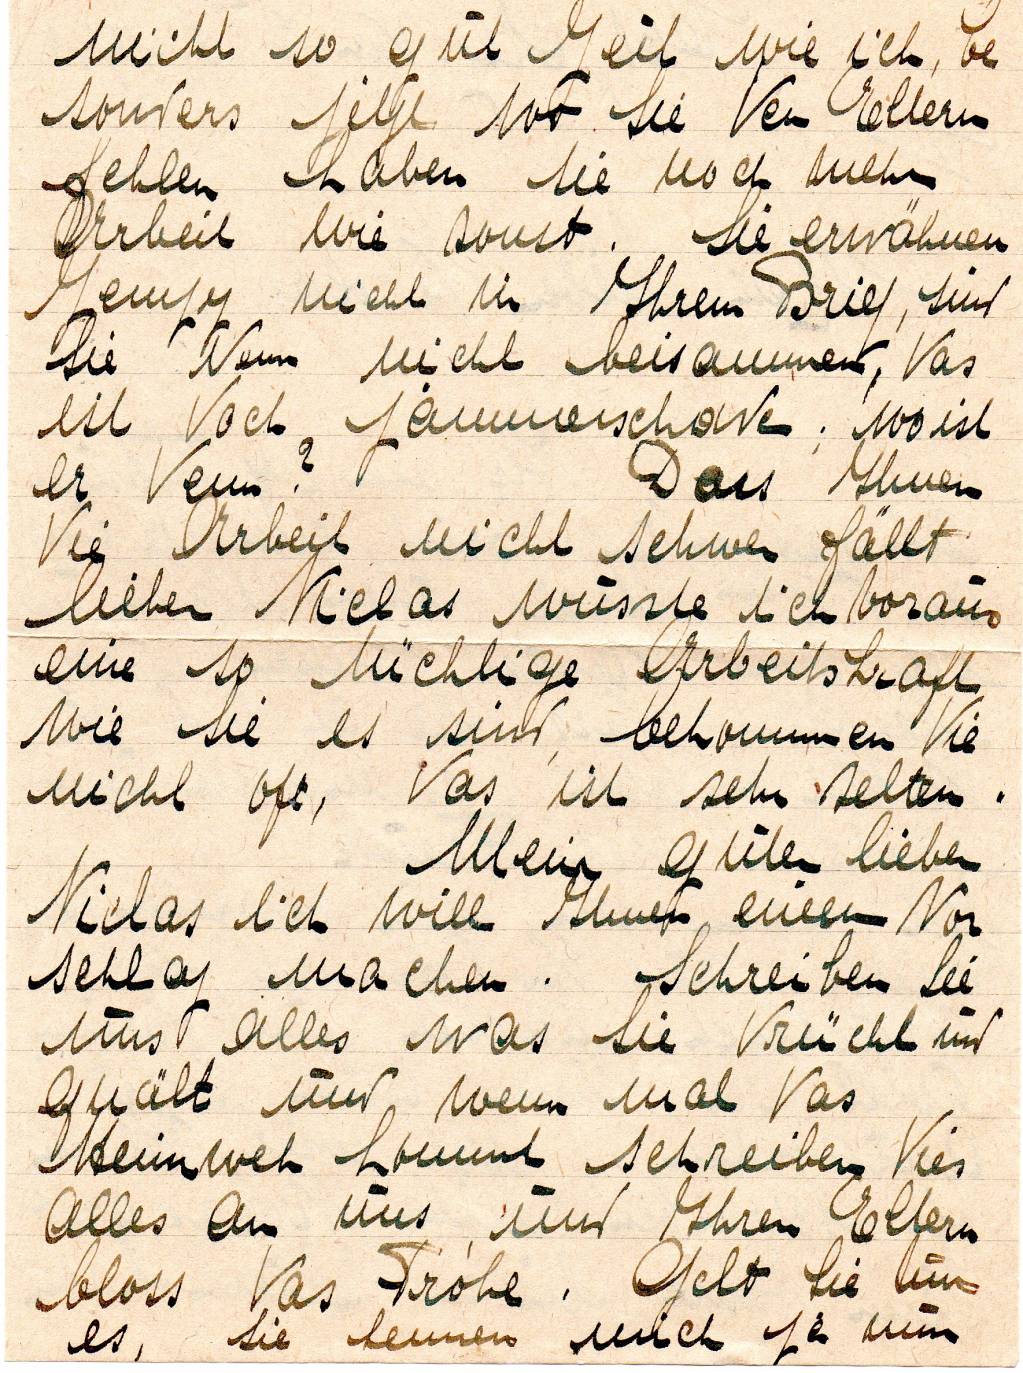 nicht so gut Zeit wie ich, be
sonders jetzt wo Sie den Eltern
fehlen haben sie noch mehr
Arbeit wie sonst. Sie erwähnen
Jempy nicht in Ihrem Brief, sind
Sie denn nicht beisammen, das
ist doch jammerschade, wo ist
er denn? Dass Ihnen
die Arbeit nicht schwer fällt
lieber Niclas wüsste ich voraus
eine so tüchtige Arbeitskraft
wie Sie es sind, bekommen die
nicht oft, das ist sehr selten.
Mein guter lieber
Niclas ich will Ihnen einen Vor
schlag machen. Schreiben Sie
uns alles was Sie drückt und
quält und wenn mal das
Heimweh kommt schreiben dies
alles an uns, und Ihren Eltern
bloss das Frohe. Gelt Sie tun
es, Sie kennen mich ja nun